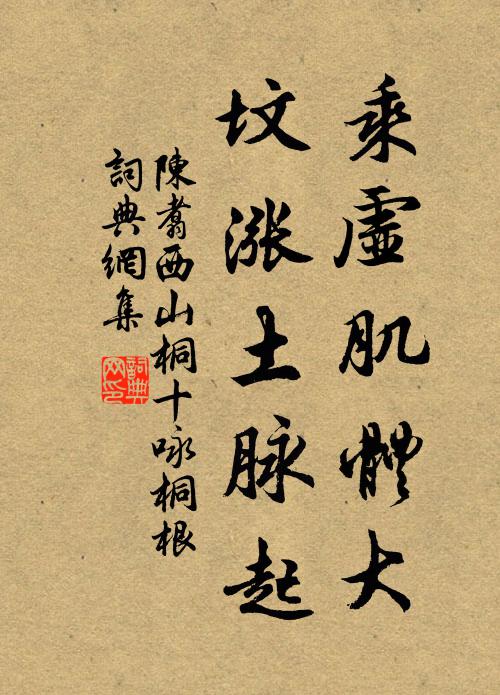 乘虛肌體大
坟漲土脉起
陳翥西山桐十咏桐根
詞典網集
詞典
网印